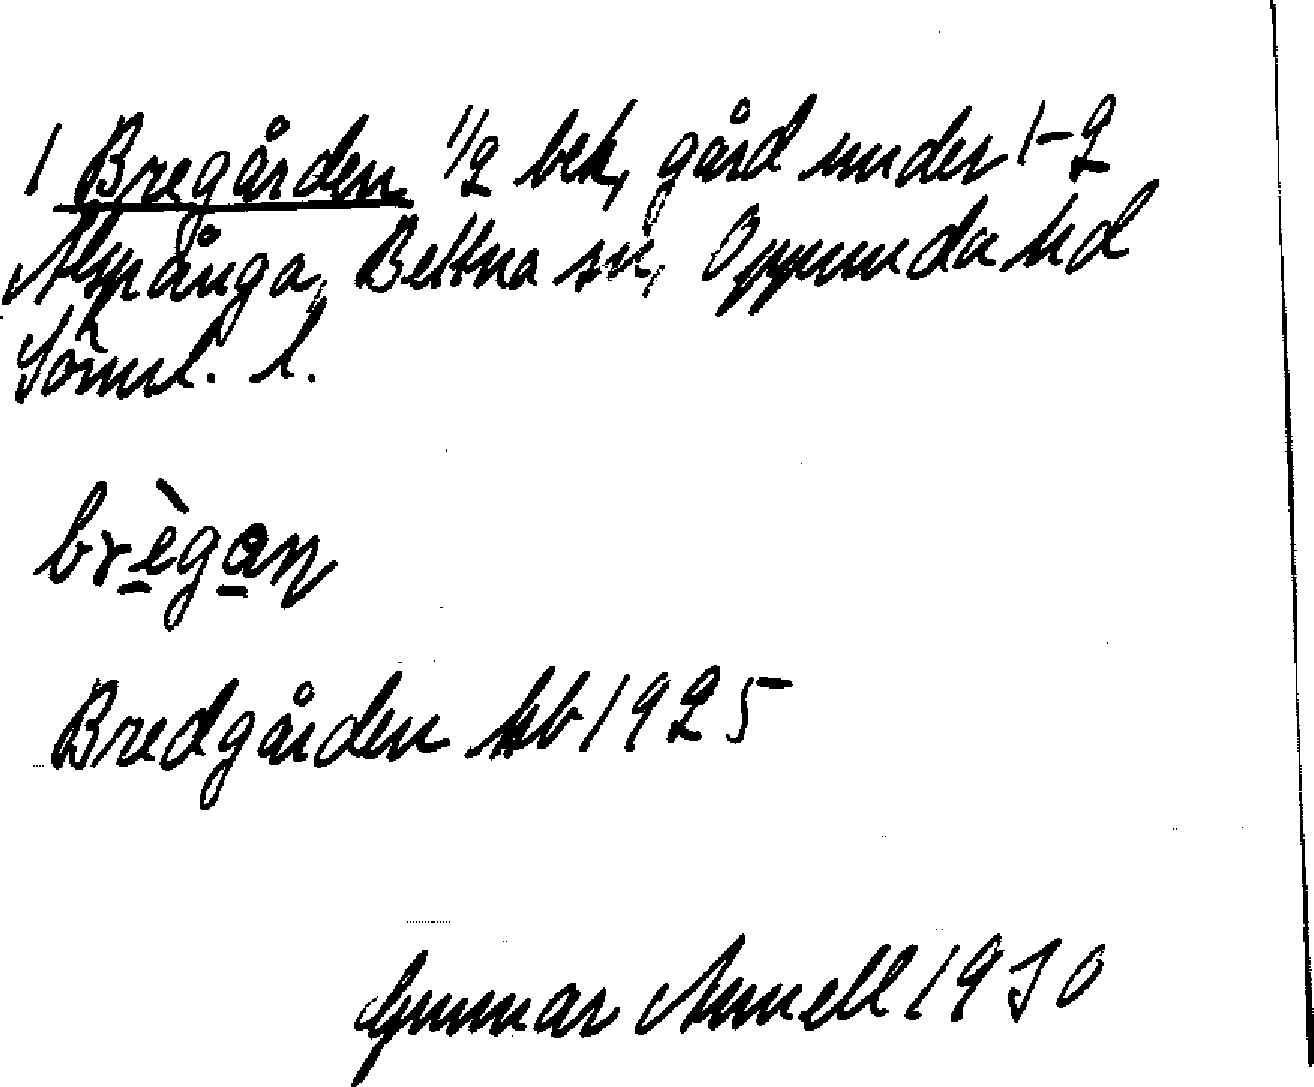 1 Bregården 1/2 bek, gård under 1-2
Alspånga, Bettna sn, Oppunda hd
Söml. l.
brègan
Bredgården hb 1925
Gunnar Arnell 1930